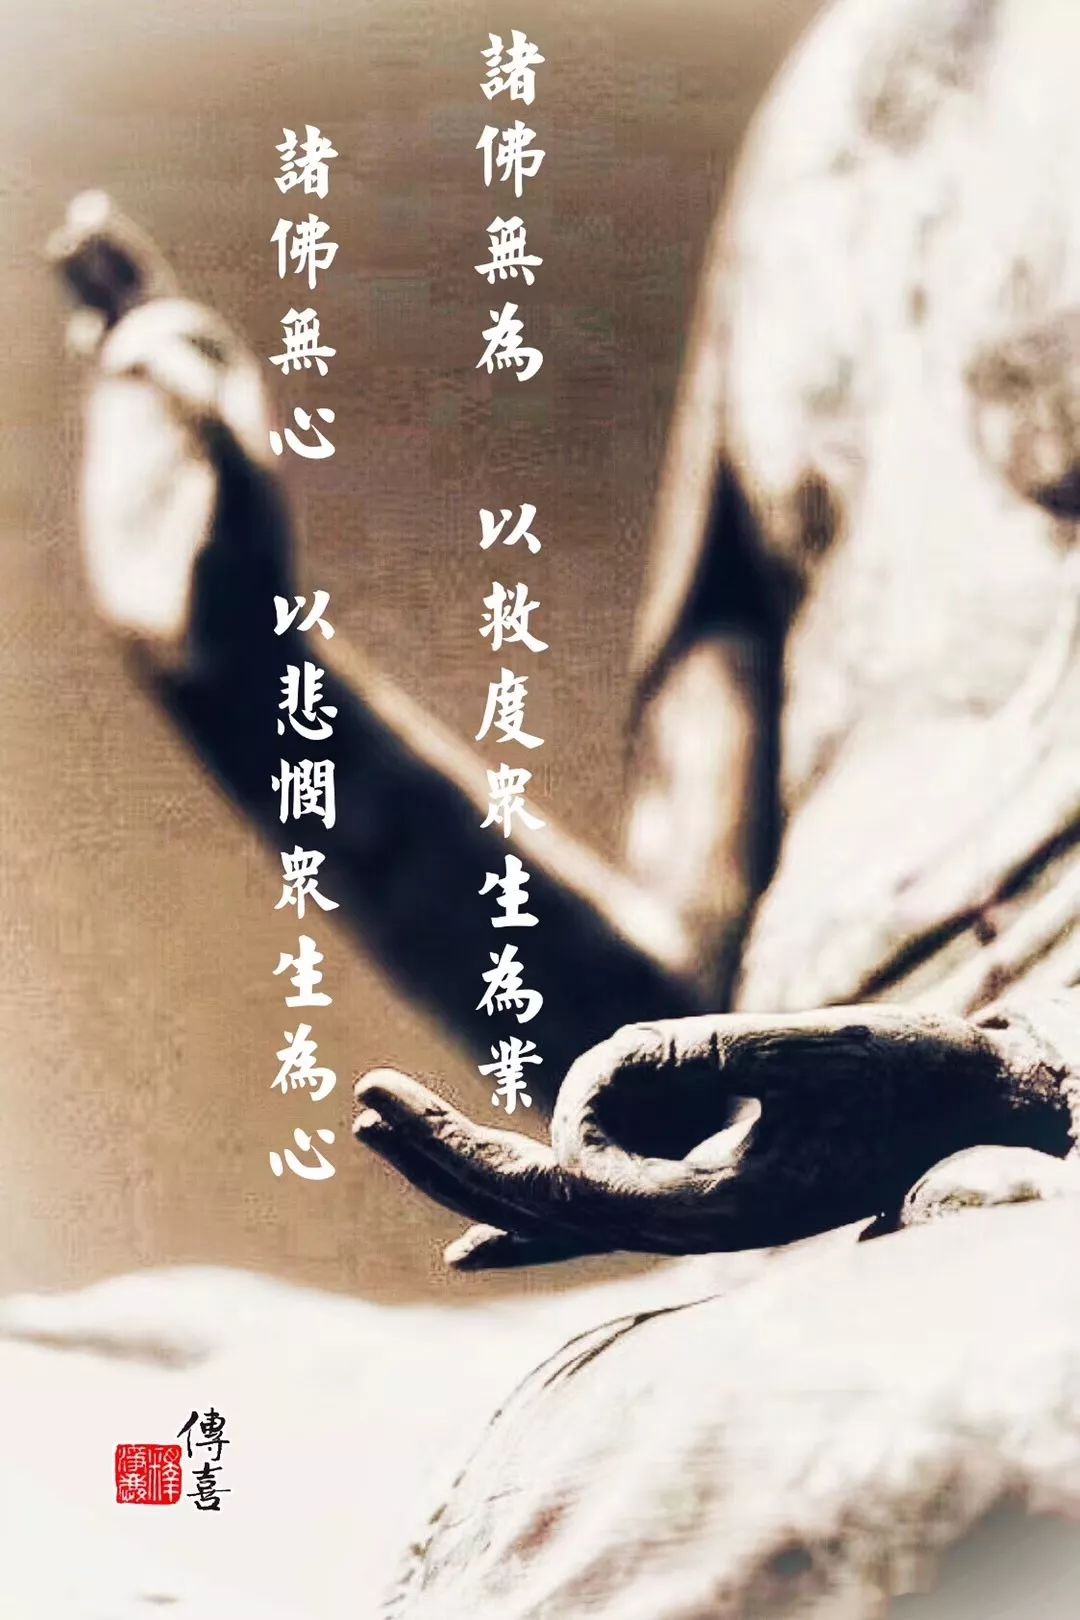 諸佛無為 以救度衆生為業
諸佛無心 以悲憫衆生為心
傳喜